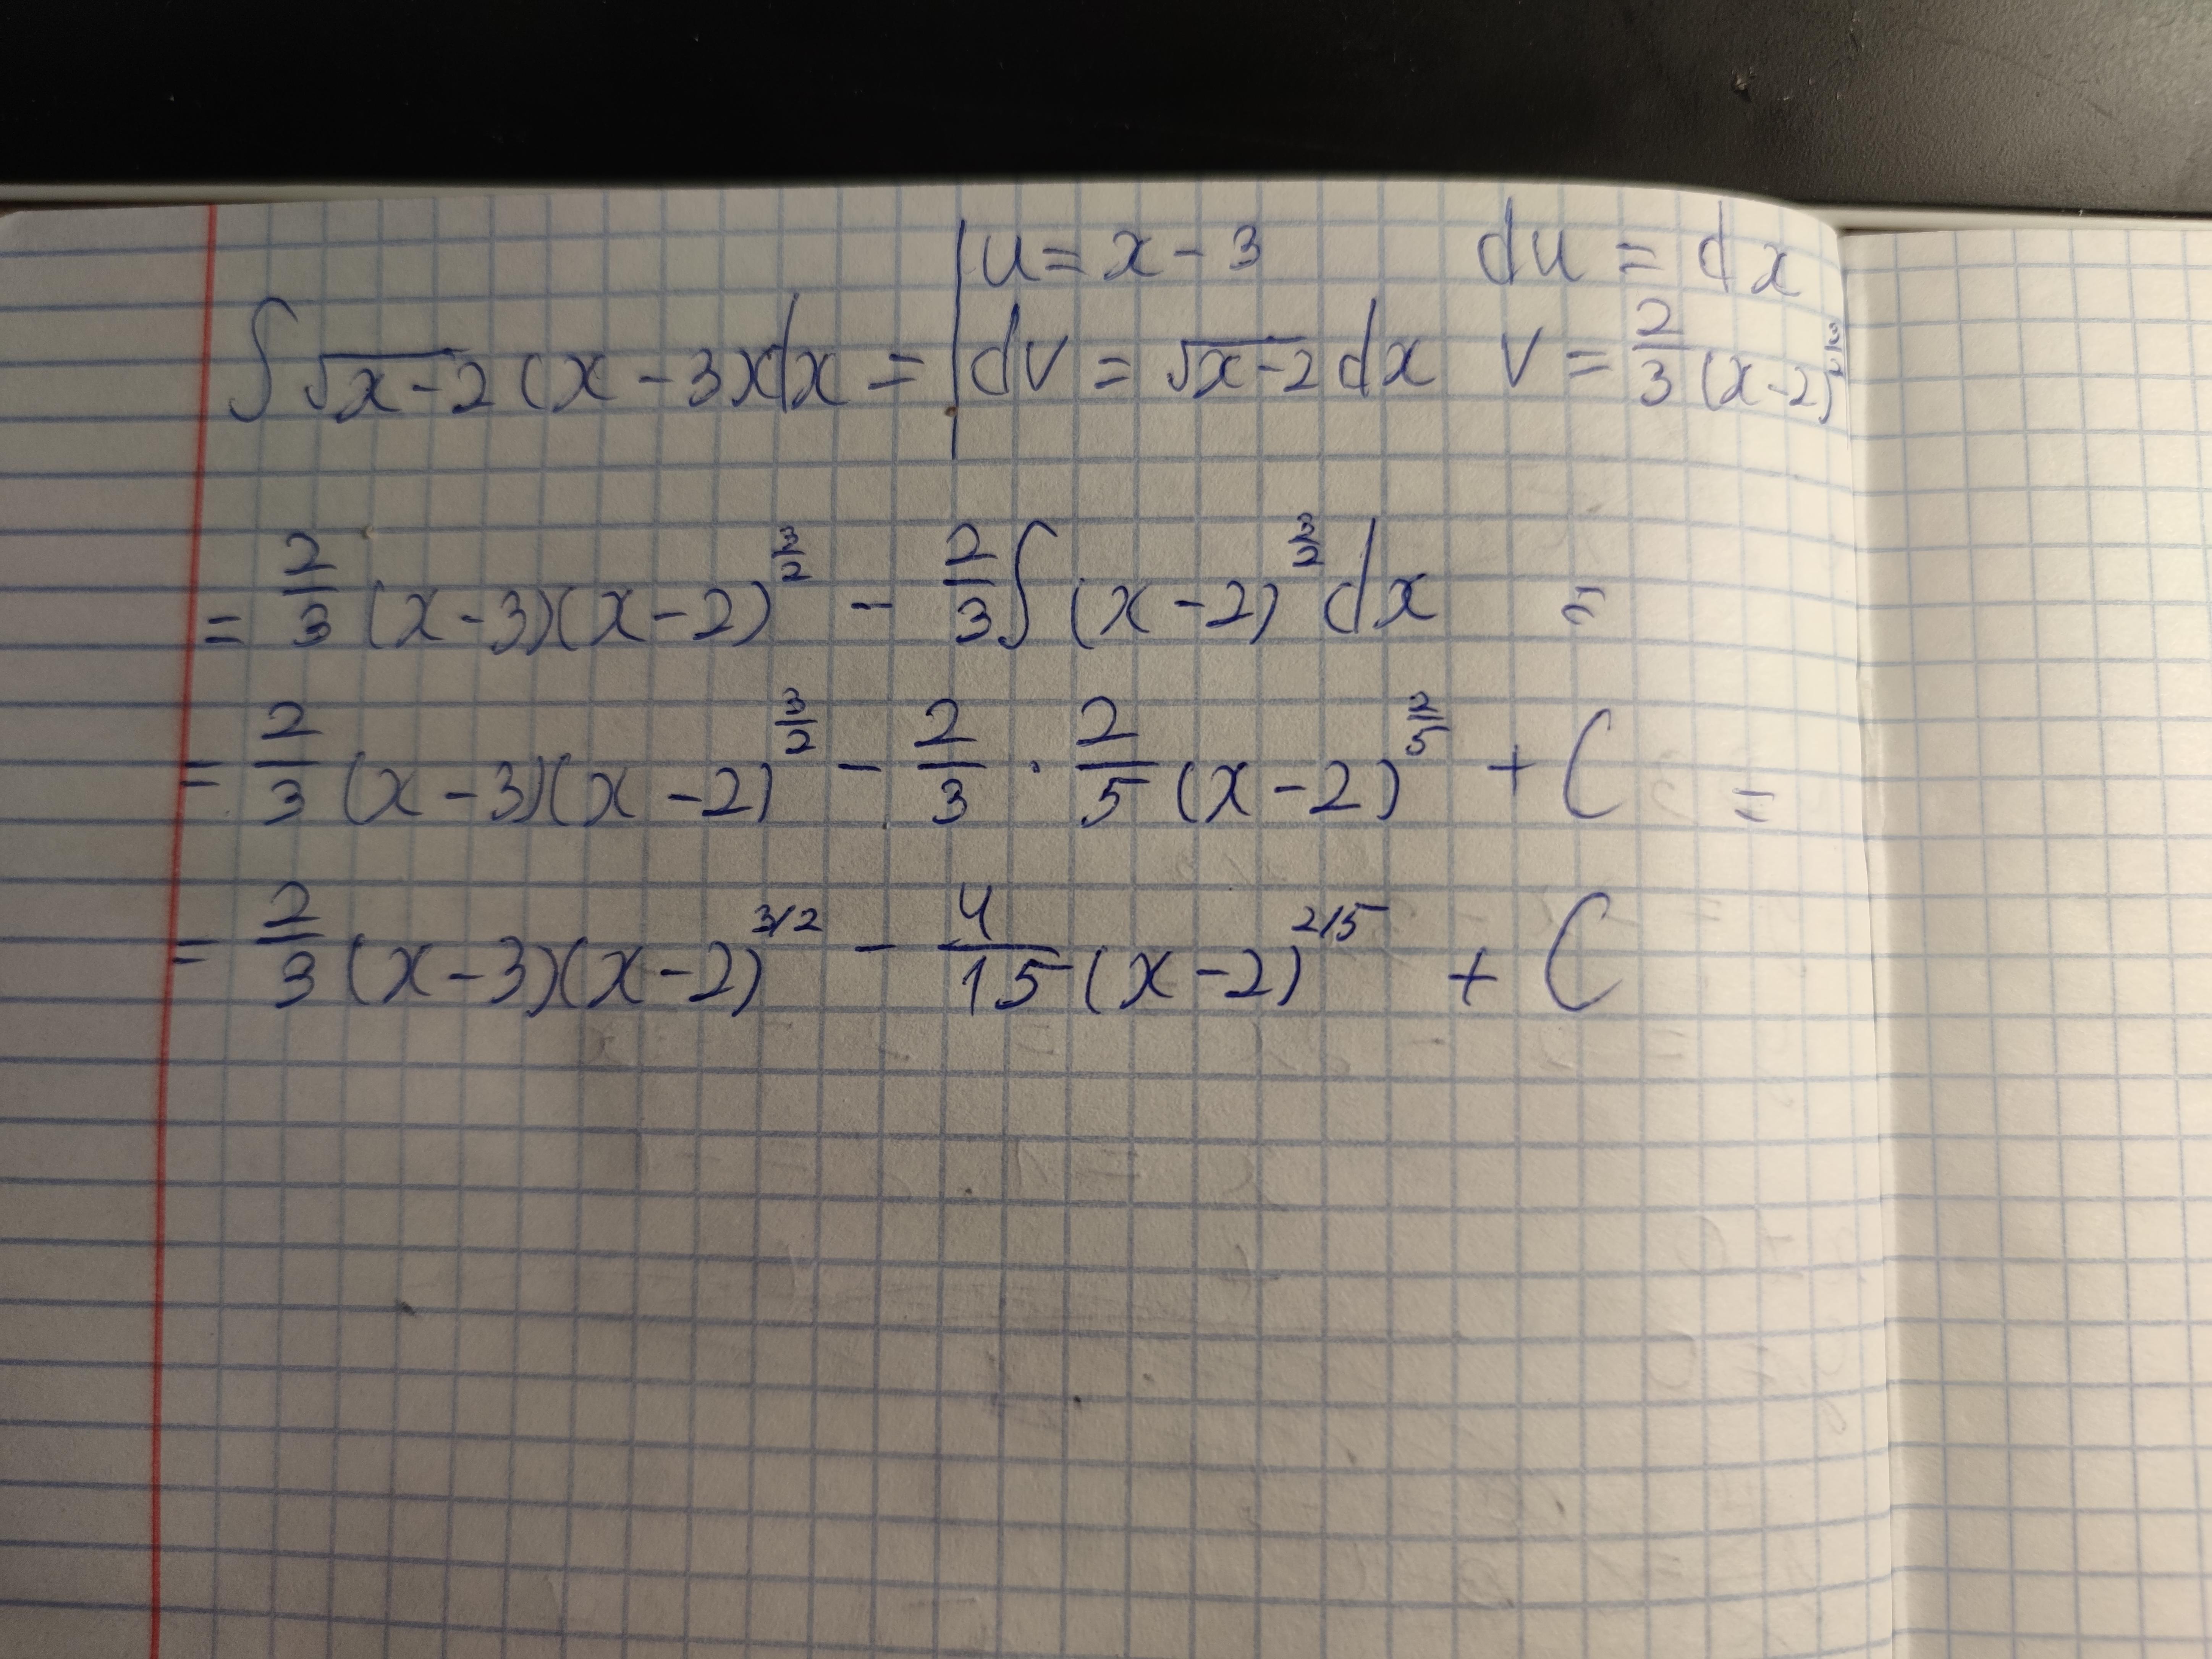 ∫ √x-2 (x-3)dx = | u = x-3   du = dx
dv = √x-2 dx   v = 2/3 (x-2)^(3/2)
= 2/3 (x-3)(x-2)^(3/2) - 2/3 ∫ (x-2)^(3/2) dx =
= 2/3 (x-3)(x-2)^(3/2) - 2/3 · 2/5 (x-2)^(2/5) + C =
= 2/3 (x-3)(x-2)^(3/2) - 4/15 (x-2)^(2/5) + C